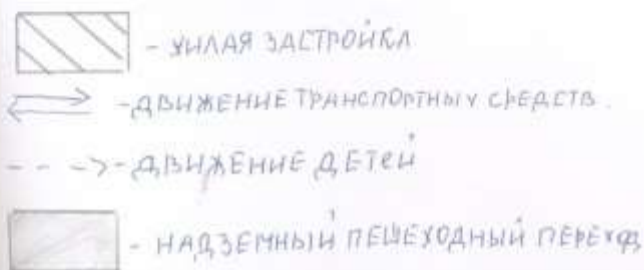 - ЖИЛАЯ ЗАСТРОЙКА
- ДВИЖЕНИЕ ТРАНСПОРТНЫХ СРЕДСТВ.
- ДВИЖЕНИЕ ДЕТЕЙ
- НАДЗЕМНЫЙ ПЕШЕХОДНЫЙ ПЕРЕХОД